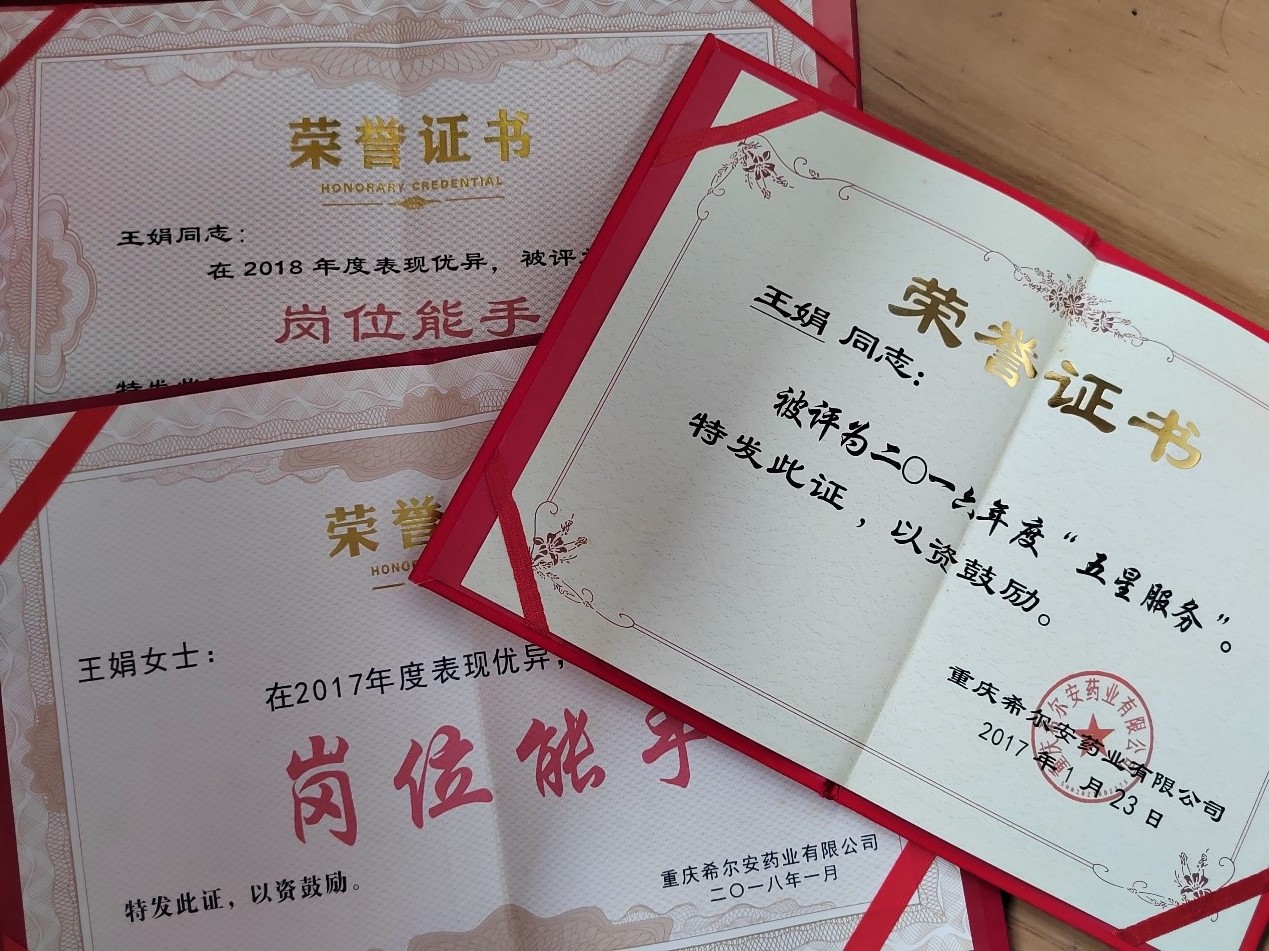 荣誉证书
HONORARY CREDENTIAL
王娟同志：
在 2018 年度表现优异，被评
岗位能手
特发
荣誉
HONO
王娟女士：
在2017年度表现优异，
岗位能手
特发此证，以资鼓励。
重庆希尔安药业有限公司
二〇一八年一月
荣誉证书
王娟 同志：
被评为二〇一六年度“五星服务”。
特发此证，以资鼓励。
重庆希尔安药业有限公司
2017 年 1 月 23 日
重庆希尔安药业有限公司